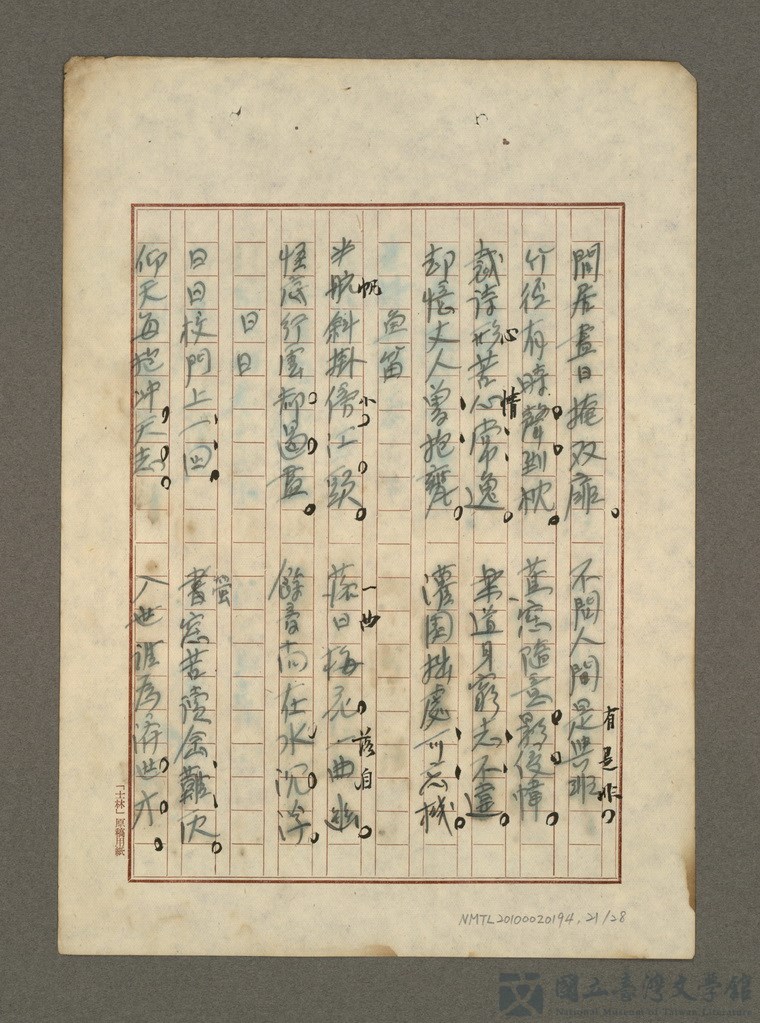 閒居晝日掩双扉。 不問人間是與非
有是非。
竹徑有時聲到枕。 蕉窓隨意影侵幃。
裁詩形苦心常逸。 樂道身窮志不違。
心 情
却憶丈人曾抱甕。 灌園拙處可忘機。
魚笛
半航斜掛倚江頭。 落日梅花一曲幽。
帆 小 一曲 落自
怪底行雲都遏盡。 餘音尚在水沉浮。
日日
日日校門上一回。 書窓苦讀金難次。
螢
仰天每抱冲天志。 入世誰為濟世才。
「士林」原稿用紙
NMTL20100020194, 21/28
國立臺灣文學館
National Museum of Taiwan Literature